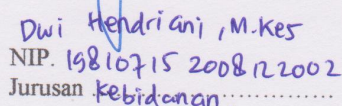 Dwi Hendriani, M.Kes
NIP. 19810715 2008122002
Jurusan Kebidanan